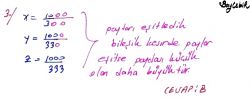 3-) x = 1000/300
y = 1000/330
z = 1000/333
payları eşitledik
bileşik kesirde paylar
eşitse paydası küçük
olan daha büyüktür.
CEVAP: B